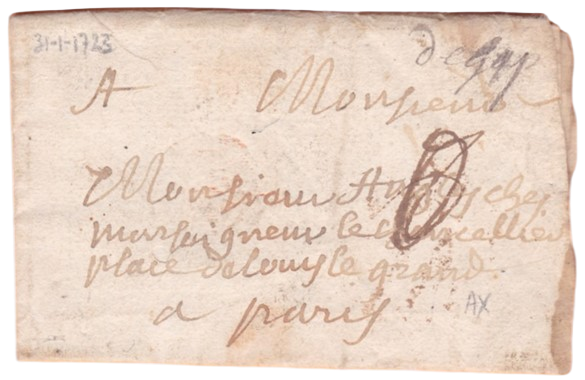 31-1-1723
de Gap
A Monsieur
Monsieur chez
monseigneur le chancellier
place de louis le grand
a paris
AX